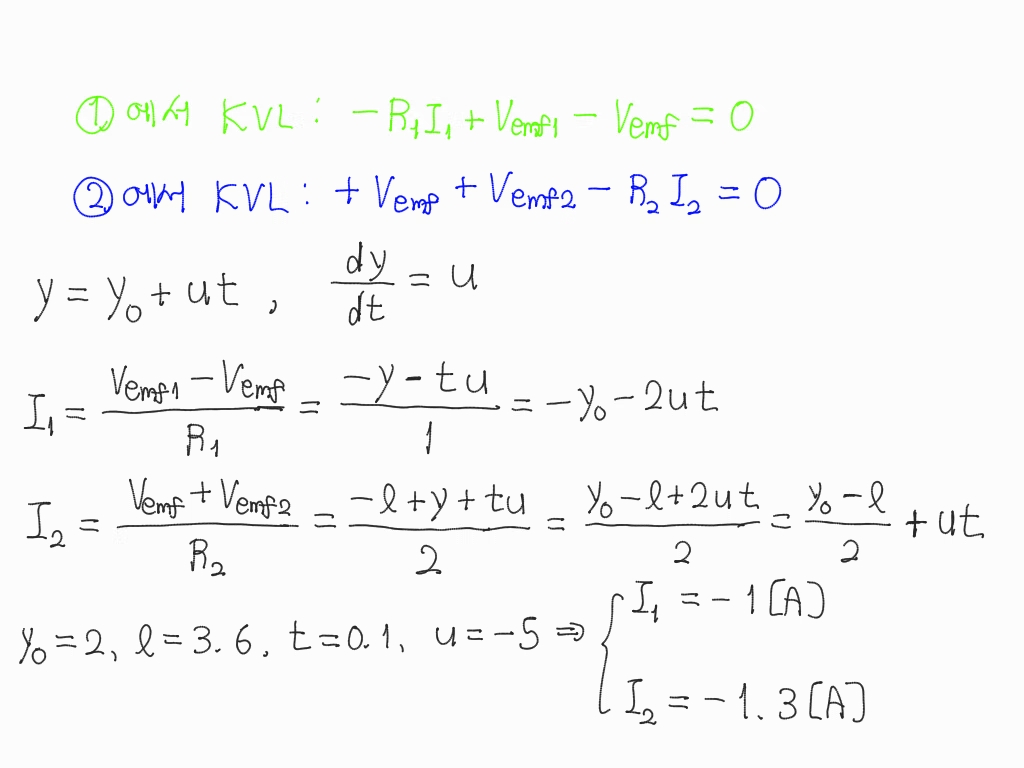 ① 에서 KVL : -R₁I₁ + Vemf1 - Vemf = 0
② 에서 KVL : + Vemf + Vemf2 - R₂ I₂ = 0
y = y₀ + ut , dy/dt = u
I₁ = (Vemf1 - Vemf)/R₁ = (-y - tu)/1 = -y₀ - 2ut
I₂ = (Vemf + Vemf2)/R₂ = (-ℓ + y + tu)/2 = (y₀ - ℓ + 2ut)/2 = (y₀ - ℓ)/2 + ut
y₀ = 2, ℓ = 3.6, t = 0.1, u = -5 ⇒ { I₁ = -1 [A]
I₂ = -1.3 [A]